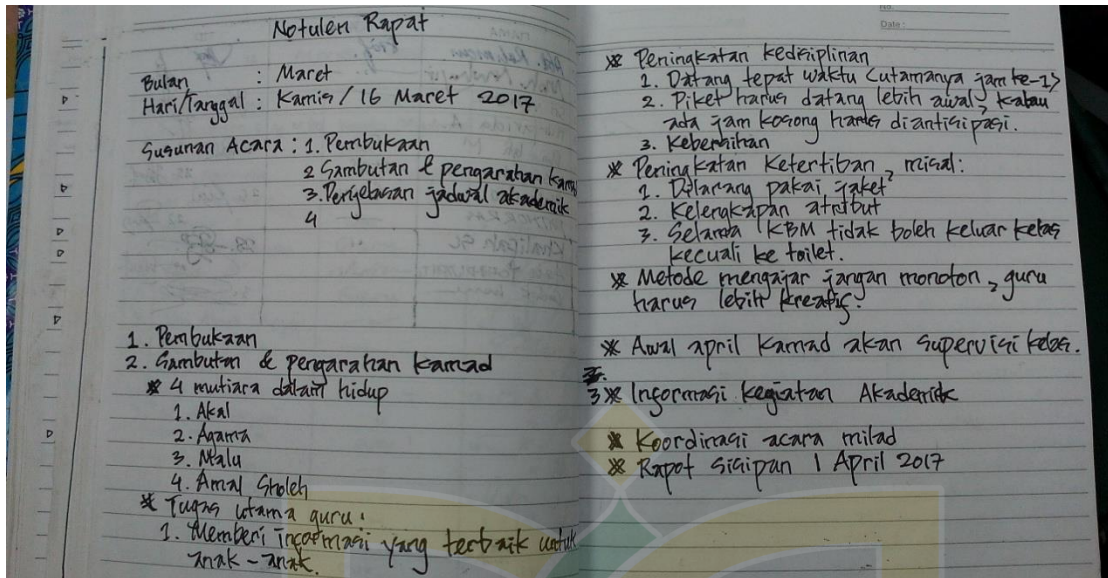 Notulen Rapat
Bulan : Maret
Hari/Tanggal : Kamis / 16 Maret 2017
Susunan Acara : 1. Pembukaan
2 Sambutan & pengarahan kamad
3. Penjelasan jadwal akademik
4
1. Pembukaan
2. Sambutan & pengarahan kamad
* 4 mutiara dalam hidup
1. Akal
2. Agama
3. Malu
4. Amal Sholeh
* Tugas utama guru :
1. Memberi informasi yang terbaik untuk
anak - anak.
No.
Date :
* Peningkatan kedisiplinan
1. Datang tepat waktu (utamanya jam ke-1)
2. Piket harus datang lebih awal, kalau
ada jam kosong harus diantisipasi.
3. Kebersihan
* Peningkatan Ketertiban, misal :
1. Dilarang pakai jaket
2. Kelengkapan atribut
3. Selama KBM tidak boleh keluar kelas
kecuali ke toilet.
* Metode mengajar jangan monoton, guru
harus lebih kreatif.
* Awal april Kamad akan supervisi kelas.
3 * Informasi kegiatan Akademik
* Koordinasi acara milad
* Rapot sisipan 1 April 2017